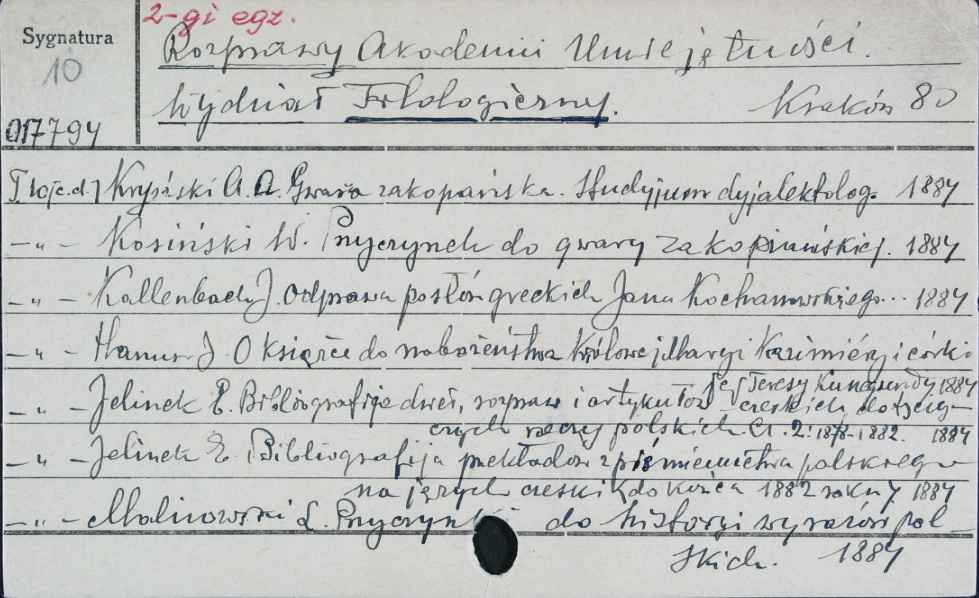 2-gi egz.
Sygnatura
10
Rozprawy Akademii Umiejętności.
Wydział Filologicznej. Kraków 80
017794
T. 10 [c.d.] Kryński A. A. Gwara zakopańska. Studyjum dyjalektolog. 1884
-„- Kosiński W. Przyczynek do gwary zakopiańskiej. 1884
-„- Kallenbach J. Odprawa posłów greckich Jana Kochanowskiego... 1884
-„- Hanusz J. O książce do nabożeństwa Królowej Maryi Kazimiéry i córki
jej Teresy Kunegundy. 1884
-„- Jelinek E. Bibliografija dzieł, rozpraw i artykułów czeskich dotyczą-
cych rzeczy polskich Cz. 2: 1878-1882. 1884
-„- Jelinek E. Bibliografija przekładów z piśmiennictwa polskiego
na język czeski (do końca 1882 roku) 1884
-„- Malinowski L. Przyczynki do historyi wyrazów pol-
skich. 1884